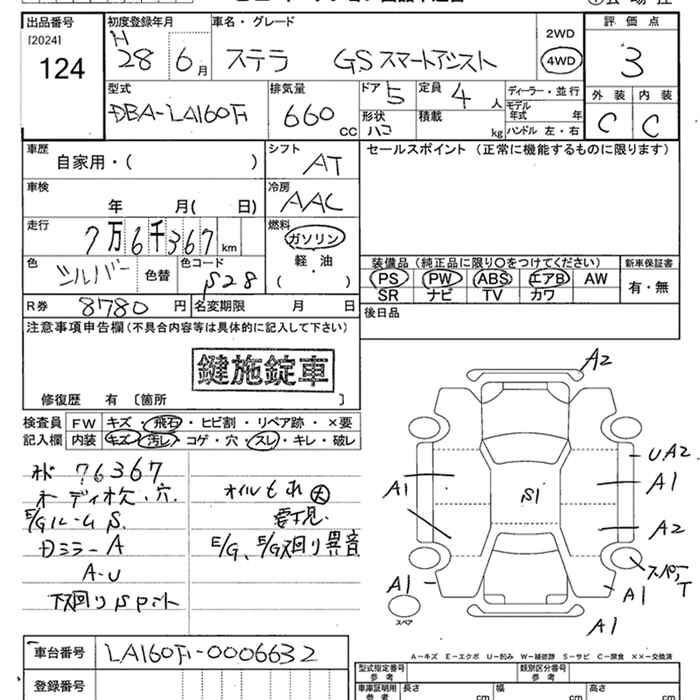 出品番号 初度登録年月 車名・グレード 評価点
[2024] H 2WD
124 28 6月 ステラ GSスマートアシスト 4WD 3
型式 排気量 ドア 5 定員 4人 ディーラー・並行 外装 内装
DBA-LA160F 660cc 形状 ハコ 積載 kg モデル年式 年 C C
ハンドル 左・右
車歴 シフト セールスポイント (正常に機能するものに限ります)
自家用・( ) AT
車検 冷房
年 月( 日) AAC
走行 燃料
7万6千367km ガソリン
色 色コード 軽油 装備品 (純正品に限り○をつけてください) 新車保証書
シルバー 色替 S28 ( ) PS PW ABS エアB AW 有・無
SR ナビ TV カワ
R券 8780円 名変期限 月 日 後日品
注意事項申告欄(不具合内容等は具体的に記入して下さい)
鍵施錠車
修復歴 有 〔箇所 〕
検査員 FW キズ・飛石・ヒビ割・リペア跡・×要
記入欄 内装 キズ・汚レ・コゲ・穴・スレ・キレ・破レ
76367
オーディオ欠、穴 オイルもれ大
E/Gルーム S 要下見
Dミラー A E/G、E/G回り異音
A-U
下回り S
A2
UA2
A1 S1 A1
A2
A1 A1
A1
スペア
A-キズ E-エクボ U-凹み W-補修跡 S-サビ C-腐食 ××-交換済
車台番号 LA160F-0006632
登録番号
型式指定番号 参考 類別区分番号 参考
車庫証明用 参考 長さ cm 幅 cm 高さ cm